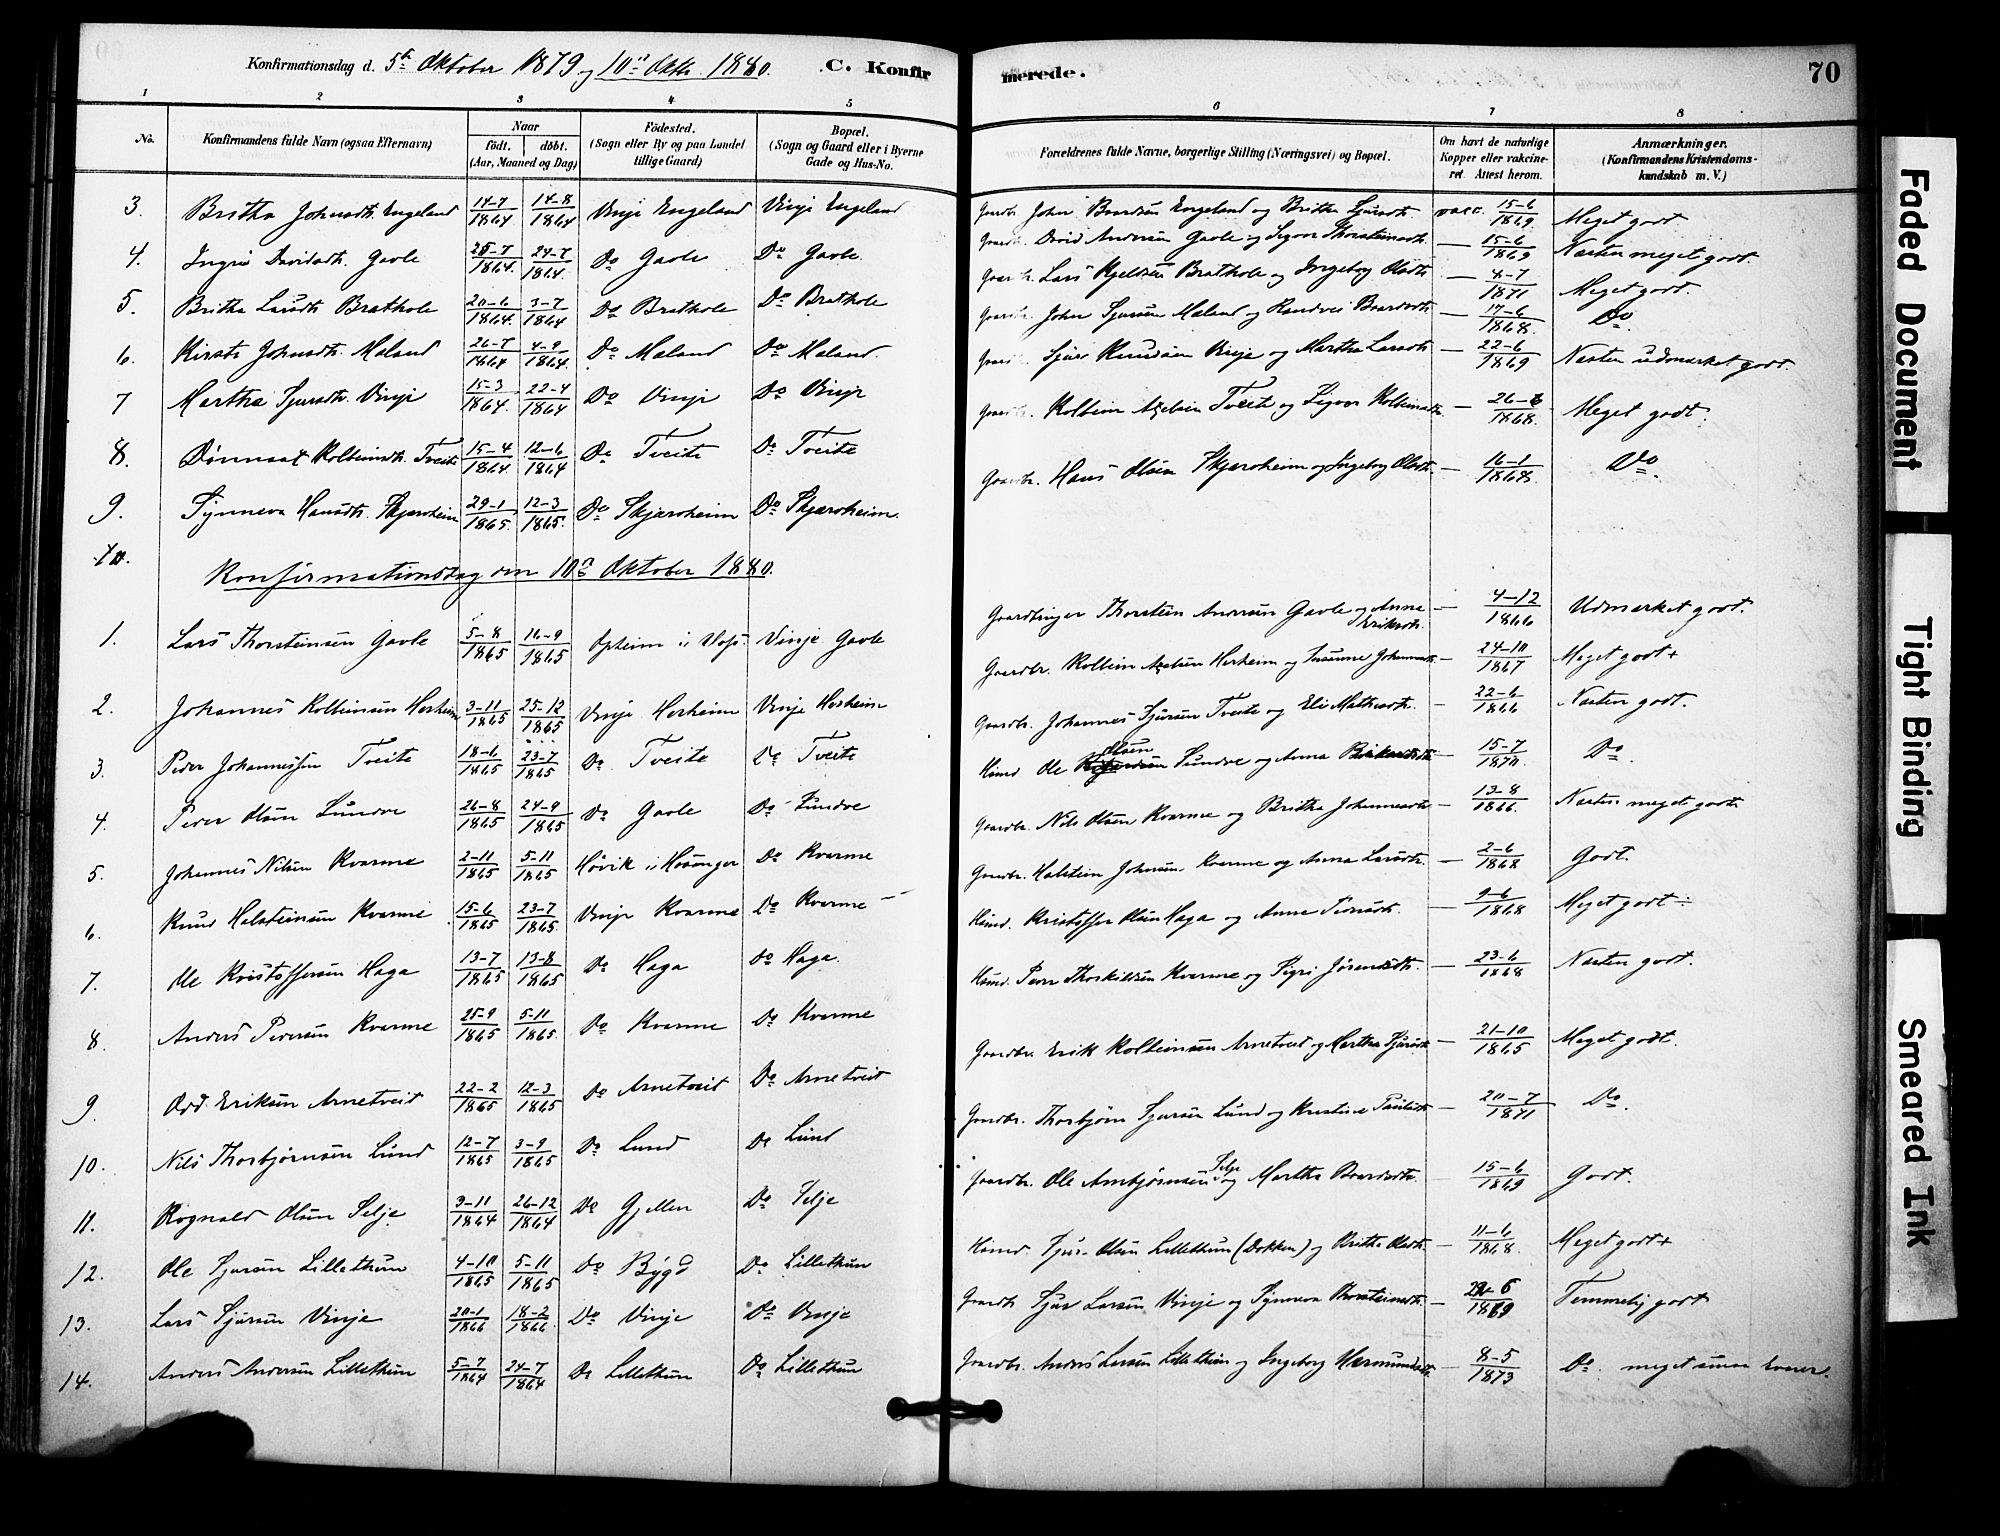 Konfirmationsdag d. 5te Oktober 1879 og 10de Oktbr. 1880. C. Konfirmerede. 70
1 2 3 4 5 6 7 8
No. Konfirmandens fulde Navn (ogsaa Efternavn) Naar født. døbt. (Aar, Maaned og Dag) Fødested. (Sogn eller By og paa Landet tillige Gaard) Bopæl. (Sogn og Gaard eller i Byerne Gade og Hus-No. Forældrenes fulde Navne, borgerlige Stilling (Næringsvei) og Bopæl. Om havt de naturlige Kopper eller vakcineret. Attest herom. Anmærkninger. (Konfirmandens Kristendomskundskab m. V.)
3. Britha Johnsdtr. Engeland 14-7 1864 14-8 1864 Vinje Engeland Vinje Engeland Gaardbr. John Baardsen Engeland og Britha Sjursdtr. vacc. 15-6 1869 Meget godt.
4. Ingri Davidsdtr. Gavle 25-7 1864. 24-7 1864. Do Gavle Do Gavle. David Andersen Gavle og Sigvor Thorsteinsdtr. — 15-6 1869 Næsten meget godt.
5. Britha Larsdtr Brathole 20-6 1864. 3-7 1864 Do Brathole Do Brathole Lars Kjeldsen Brathole og Ingeborg Olsdtr. — 4-7 1871 Meget godt.
6. Kirsti Johnsdtr. Maland 26-7 1864 4-9 1864 Do Maland Do Maland. John Sjursen Maland og Randvei Baardsdtr. — 17-6 1868. Do.
7 Martha Sjursdtr. Vinje 15-3 1864. 22-4 1864 Do Vinje Do Vinje Sjur Knudsen Vinje og Martha Larsdtr — 22-6 1869 Næsten udmærket godt.
8. Kolbeinsdtr. Tveite 15-4 1864 12-6 1864 Do Tveite Do Tveite Kolbein Tveite og Sigvor Kolbeinsdtr. — 26-6 1868. Meget godt.
9. Synneva Hansdtr. Skjærsheim 29-1 1865. 12-3 1865. Do Skjærsheim Do Skjærsheim. Gaardbr. Hans Olsen Skjærsheim og Ingeborg Olsdtr. — 16-1 1868. Do.
Konfirmationsdag den 10de Oktober 1880.
1. Lars Thorsteinsen Gavle 5-8 1865 16-9 1865 Opheim i Vinje Gavle Thorstein Andersen Gavle og Anna Eriksdtr. — 4-12 1866 Udmærket godt.
2. Johannes Kolbeinsen Herheim 3-11 1865 25-12 1865 Vinje Herheim Vinje Herheim Gaardbr. Kolbein Herheim og Susanne Johannesdtr. — 24-10 1867 Meget godt+
3. Peder Johannessen Tveite 18-6 1865 23-7 1865 Do Tveite Do Tveite Gaardbr. Johannes Sjursen Tveite og Eli Mathisdtr. — 22-6 1866 Næsten godt.
4. Peder Olsen Sundve 26-8 1865 24-9 1865 Do Gavle Do Sundve Husmd Ole Olsen Sundve og Anna — 15-7 1870. Do.
5. Johannes Nilsen Kvarme 2-11 1865 5-11 1865 Høvik i Hosanger Do Kvarme Gaardbr. Nils Olsen Kvarme og Britha Johannesdtr — 13-8 1866. Næsten meget godt.
6. Knud Halsteinsen Kvarme 15-6 1865 23-7 1865. Vinje Kvarme Do Kvarme — Gaardbr. Halstein Johnsen Kvarme og Anna Larsdtr. — 2-6 1868 Godt.
7. Ole Kristoffersen Haga 13-7 1865 13-8 1865 Do Haga Do Haga. Husmd. Kristoffer Olsen Haga og Anna Pedersdtr. — 9-6 1868 Meget godt÷
8. Anders Pedersen Kvarme 25-9 1865 5-11 1865. Do Kvarme Do Kvarme Husmd. Peder Thorkildsen Kvarme og Sigri — 23-6 1868 Næsten godt.
9. Odd Eriksen Arnetveit 22-2 1865 12-3 1865 Do Arnetveit Do Arnetveit Gaardbr. Erik Kolbeinsen Arnetveit og Martha Sjursdtr. — 21-10 1865 Meget godt.
10. Nils Thorbjørnsen Lund 12-7 1865 3-9 1865 Do Lund Do Lund Gaardbr. Thorbjørn Sjursen Lund og Kristine — 20-7 1871 Do.
11. Rognald Olsen Selje 3-11 1864 26-12 1864 Do Gjellen Do Selje Gaardbr. Ole Arnbjørnsen Selje og Martha Baardsdtr. — 15-6 1869 Godt.
12. Ole Sjursen Lillethun 4-10 1865 5-11 1865 Do Bygd Do Lillethun Husmd. Sjur Olsen Lillethun (Dokken) og Britha Olsdtr. — 11-6 1868. Meget godt+
13. Lars Sjursen Vinje 20-1 1866 18-2 1866 Do Vinje Do Vinje Gaardbr Sjur Larsen Vinje og Synneva Thorsteinsdtr. — 22-6 1869 Temmelig godt
14. Anders Andersen Lillethun 5-7 1864 24-7 1864 Do Lillethun Do Lillethun Gaardbr. Anders Larsen Lillethun og Ingeborg — 8-5 1873 Do. meget smaa Evner.
Faded Document
Tight Binding
Smeared Ink